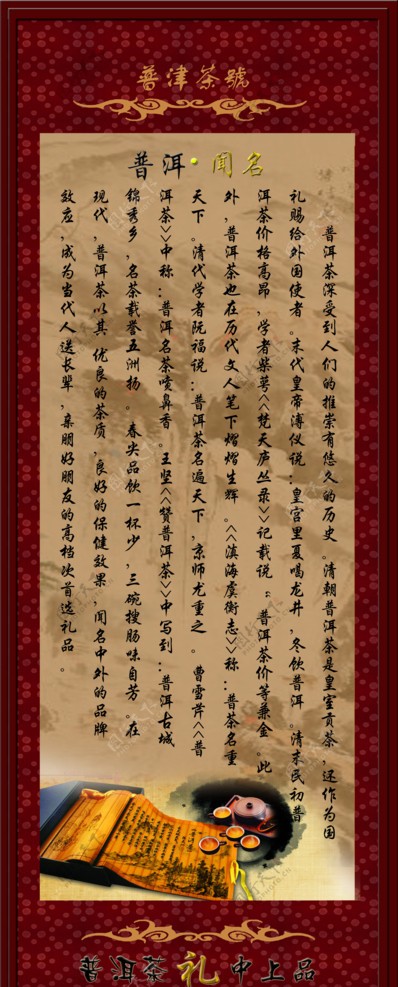 普津茶號
普洱·闻名
普洱茶深受到人们的推崇有悠久的历史。清朝普洱茶是皇室贡茶，还作为国
礼赐给外国使者。末代皇帝溥仪说：皇宫里夏喝龙井，冬饮普洱。清末民初普
洱茶价格高昂，学者柴萼<<梵天庐丛录>>记载说：普洱茶价等兼金。此
外，普洱茶也在历代文人笔下熠熠生辉。<<滇海虞衡志>>称：普茶名重
天下。清代学者阮福说：普洱茶名遍天下，京师尤重之。曹雪芹<<普
洱茶>>中称：普洱名茶喷鼻香。王坚<<赞普洱茶>>中写到：普洱古城
锦秀乡，名茶载誉五洲扬。春尖品饮一杯少，三碗搜肠味自芳。在
现代，普洱茶以其优良的茶质，良好的保健效果，闻名中外的品牌
效应，成为当代人送长辈，亲朋好朋友的高档次首选礼品。
普洱茶礼中上品